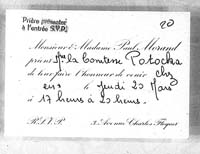 Prière présenter
à l'entrée S.V.P.
20
Monsieur & Madame Paul Morand
prient Mme la Comtesse Potocka
de leur faire l'honneur de venir chez
eux le Jeudi 20 Mars
à 17 heures à 20 heures.
R.S.V.P. 3. Avenue Charles Floquet